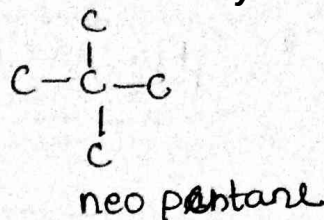 C
C – C – C
C
neo pentane